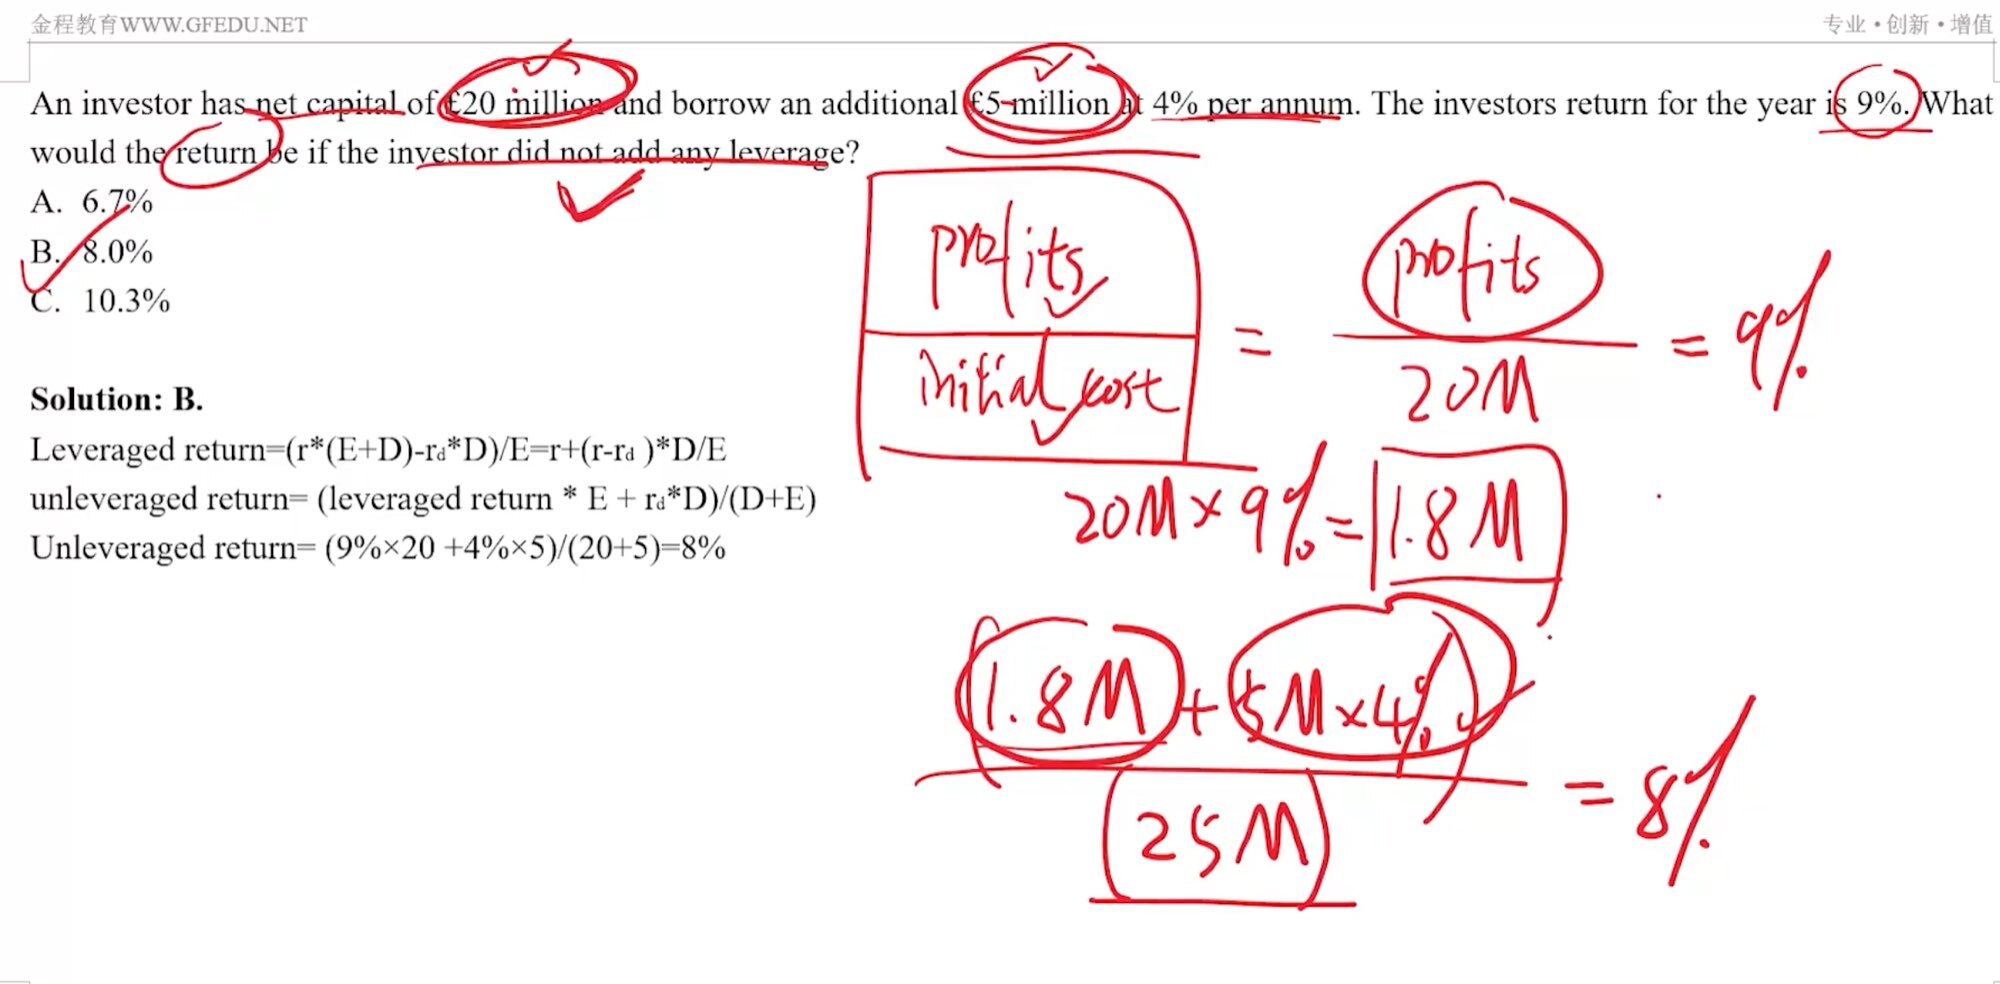 金程教育WWW.GFEDU.NET
专业·创新·增值
An investor has net capital of £20 million and borrow an additional £5 million at 4% per annum. The investors return for the year is 9%. What
would the return be if the investor did not add any leverage?
A. 6.7%
B. 8.0%
C. 10.3%
Solution: B.
Leveraged return=(r*(E+D)-rd*D)/E=r+(r-rd )*D/E
unleveraged return= (leveraged return * E + rd*D)/(D+E)
Unleveraged return= (9%×20 +4%×5)/(20+5)=8%
profits
initial cost
=
profits
20M
= 9%
20M × 9% = 1.8M
1.8M + 5M×4%
25M
= 8%